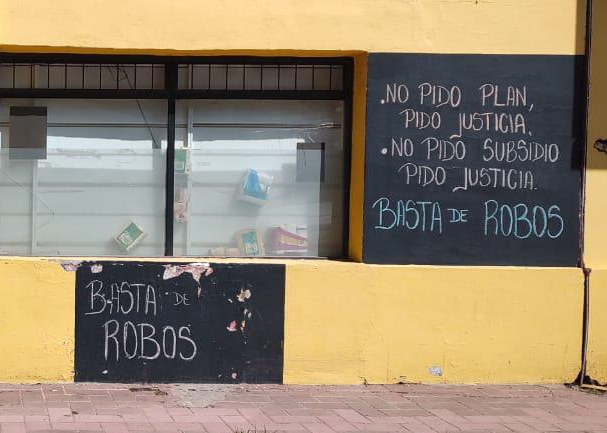 .NO PIDO PLAN,
PIDO JUSTICIA.
.NO PIDO SUBSIDIO
PIDO JUSTICIA.
BASTA DE ROBOS
BASTA DE
ROBOS